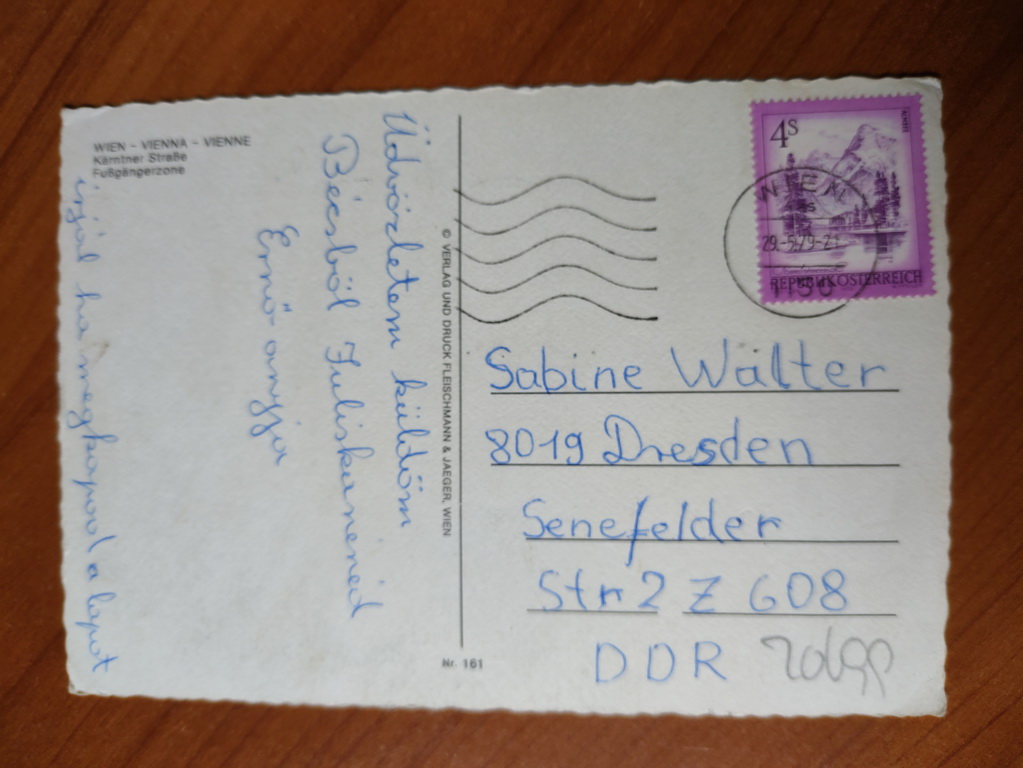 WIEN - VIENNA - VIENNE
Kärntner Straße
Fußgängerzone
Üdvözletem küldöm
Bécsből Juliskanénéd
Ernő anyja
írjál ha megkapod a lapot
© VERLAG UND DRUCK FLEISCHMANN & JAEGER, WIEN
Nr. 161
4S
REPUBLIK ÖSTERREICH
WIEN
29.-5.79-21
1150
Sabine Walter
8019 Dresden
Senefelder
Str 2 Z 608
DDR